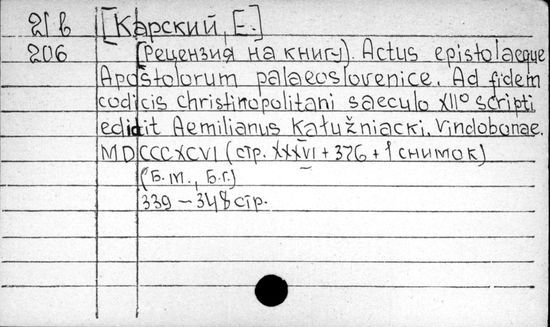 21 в [Карский, Е.]
206 (Рецензия на книгу). Actus epistolaeque
Apostolorum palaeoslovenice. Ad fidem
codicis christinopolitani saeculo XII° scripti
edidit Aemilianus Kałužniacki. Vindobonae.
MDCCCXCVI (стр. XXXVI + 376 + 1 снимок)
(Б.м., Б.г.)
339 – 348 стр.